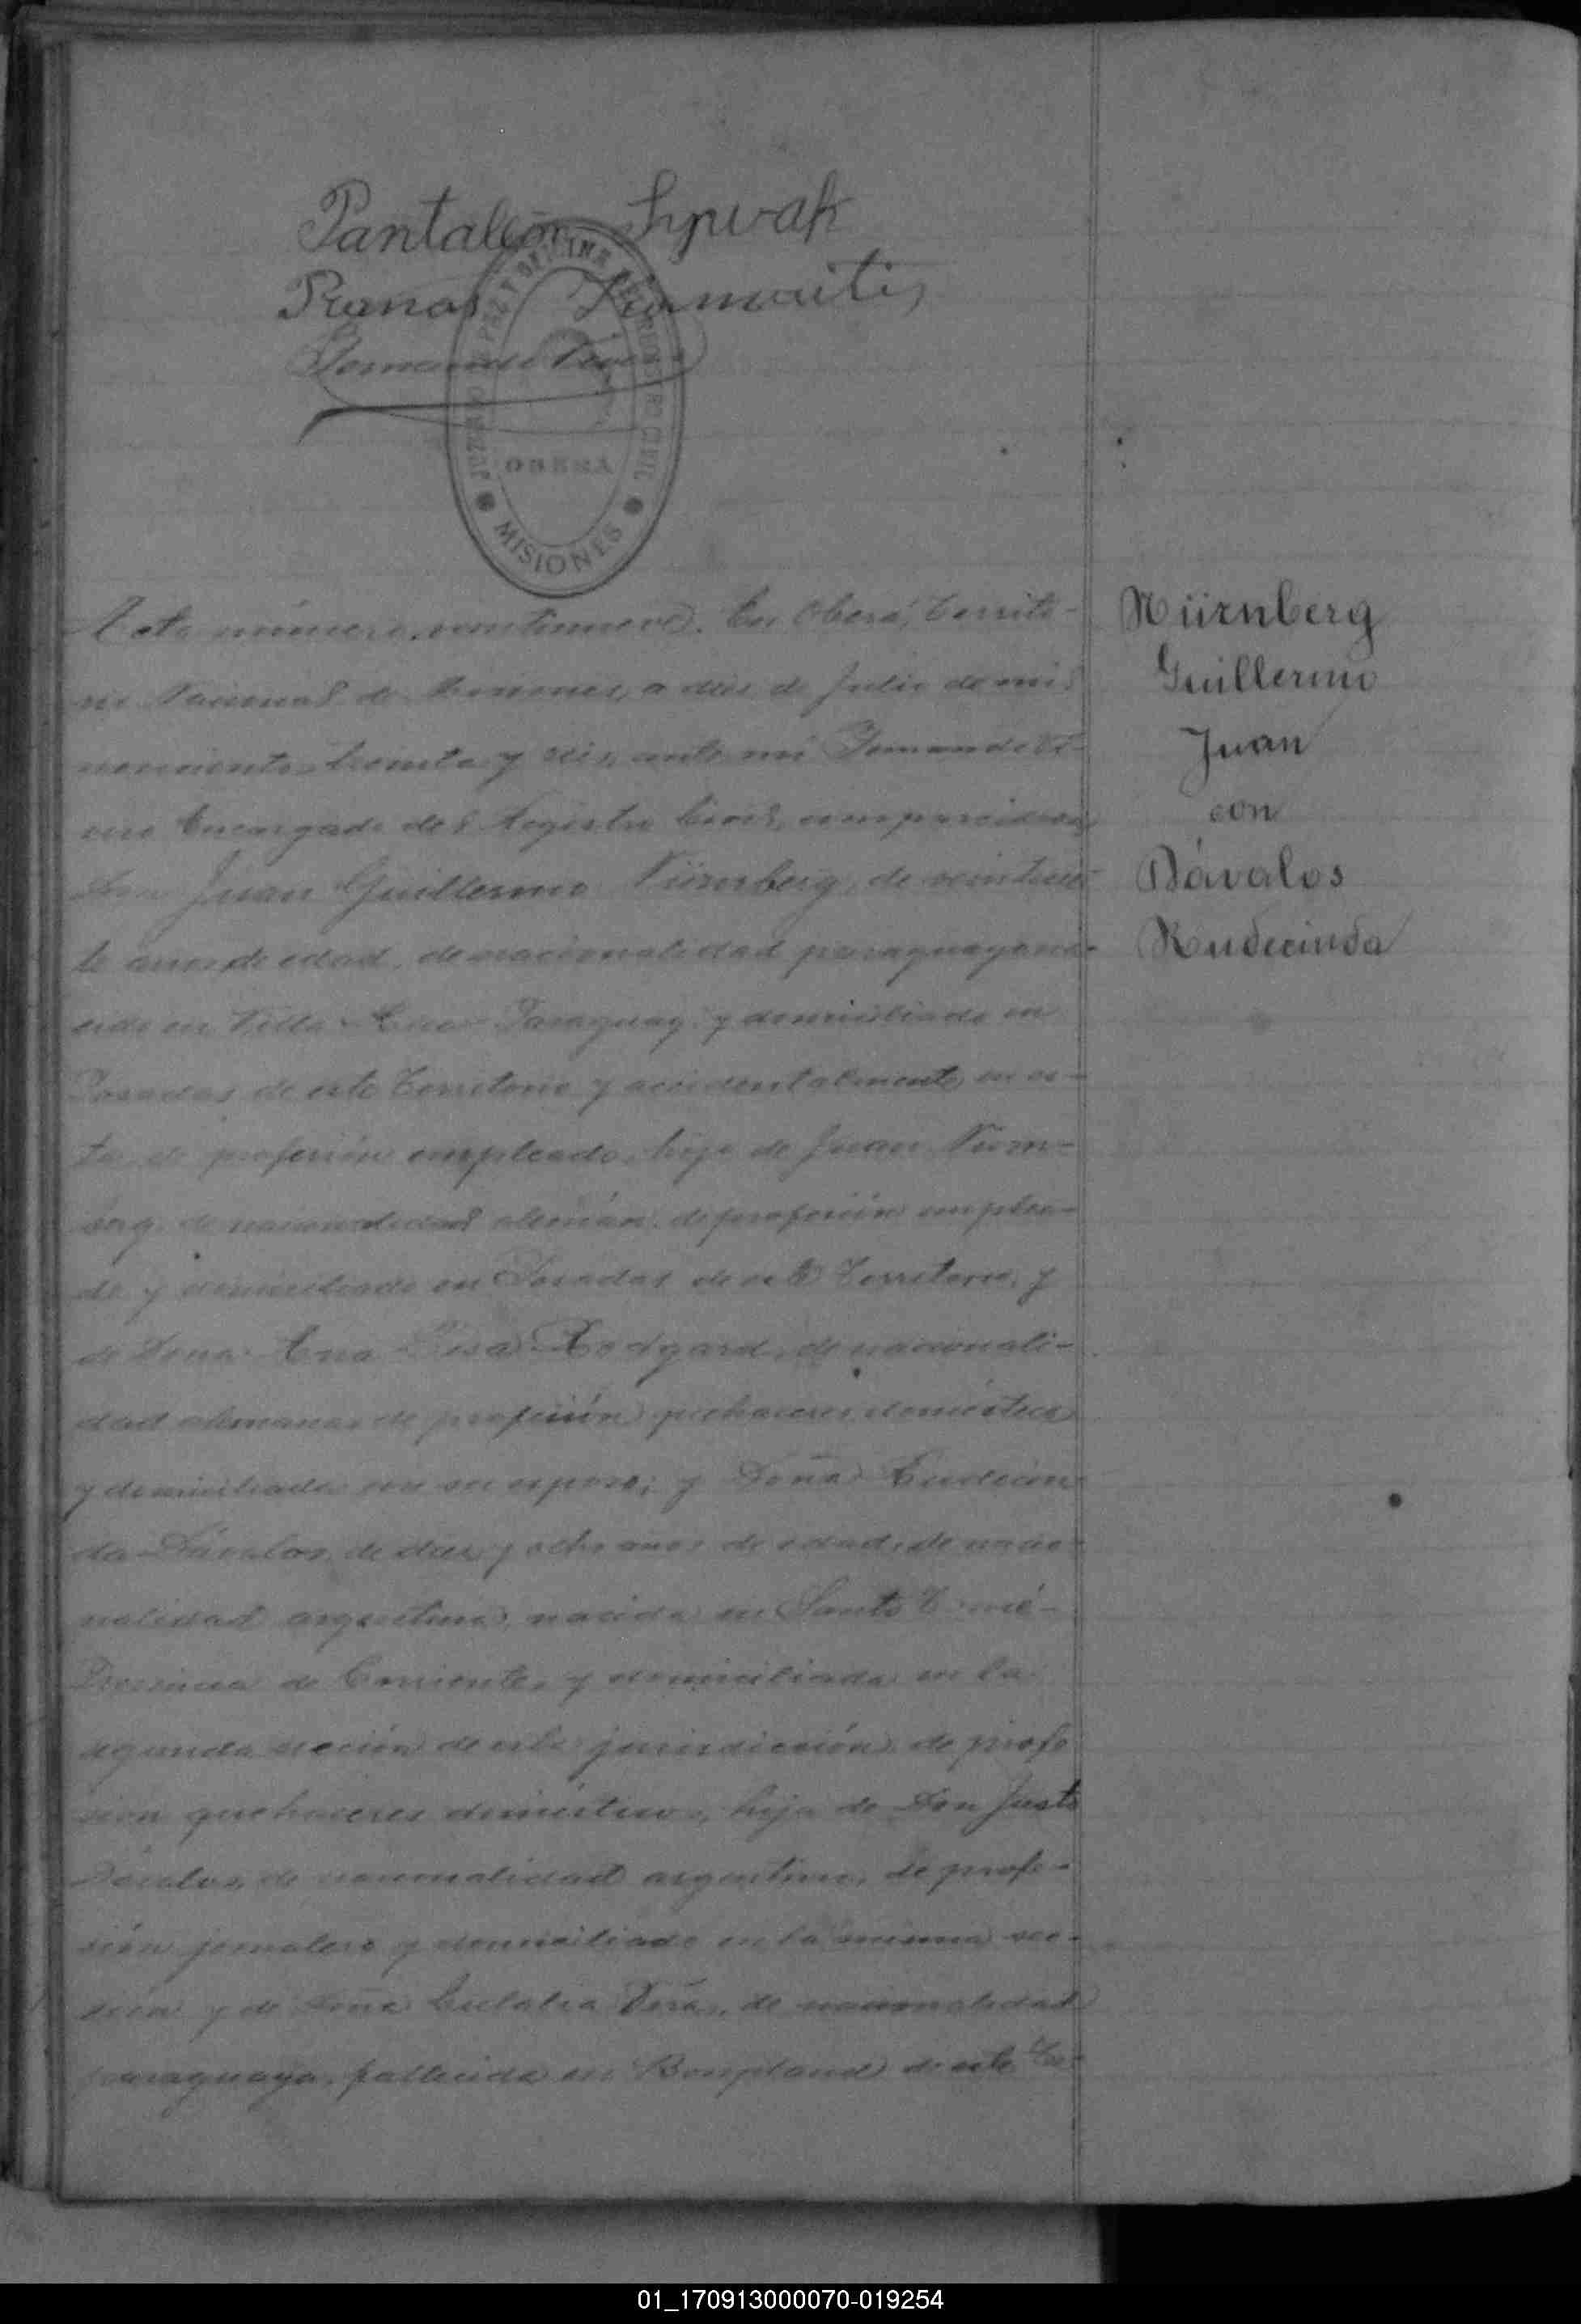 Pantaleón
Pranas
JUZGADO DE PAZ Y OFICINA DEL REGISTRO CIVIL
OBERA
MISIONES
Nürnberg
Guillermo
Juan
con
Dávalos
Rudecinda
Acta número veintinueve. En Oberá, Territo-
rio Nacional de Misiones, a diez de Julio de mil
novecientos treinta y seis, ante mí
Encargado del Registro Civil, comparecieron
Don Juan Guillermo Nürnberg, de veintisie-
te años de edad, de nacionalidad paraguayo na-
cido en Villa Paraguay y domiciliado en
Posadas de este Territorio y accidentalmente en es-
ta, de profesión empleado, hijo de Juan Nürn-
berg, de nacionalidad alemán, de profesión emplea-
do y domiciliado en Posadas de este Territorio, y
de Dona de nacionali-
dad alemana, de profesión quehaceres domésticos
y domiciliada con su esposo; y Doña Rudecin-
da Dávalos, de diez y ocho años de edad, de nacio-
nalidad argentina, nacida en Santo Tomé-
Provincia de Corrientes y domiciliada en la
segunda sección de esta jurisdicción, de profe
sion quehaceres domésticos, hija de Don Justo
Dávalos, de nacionalidad argentino, de profe-
sión jornalero y domiciliado en la misma sec-
ción y de Doña Eulalia de nacionalidad
paraguaya, fallecida en Bonpland de este Te-
01_170913000070-019254